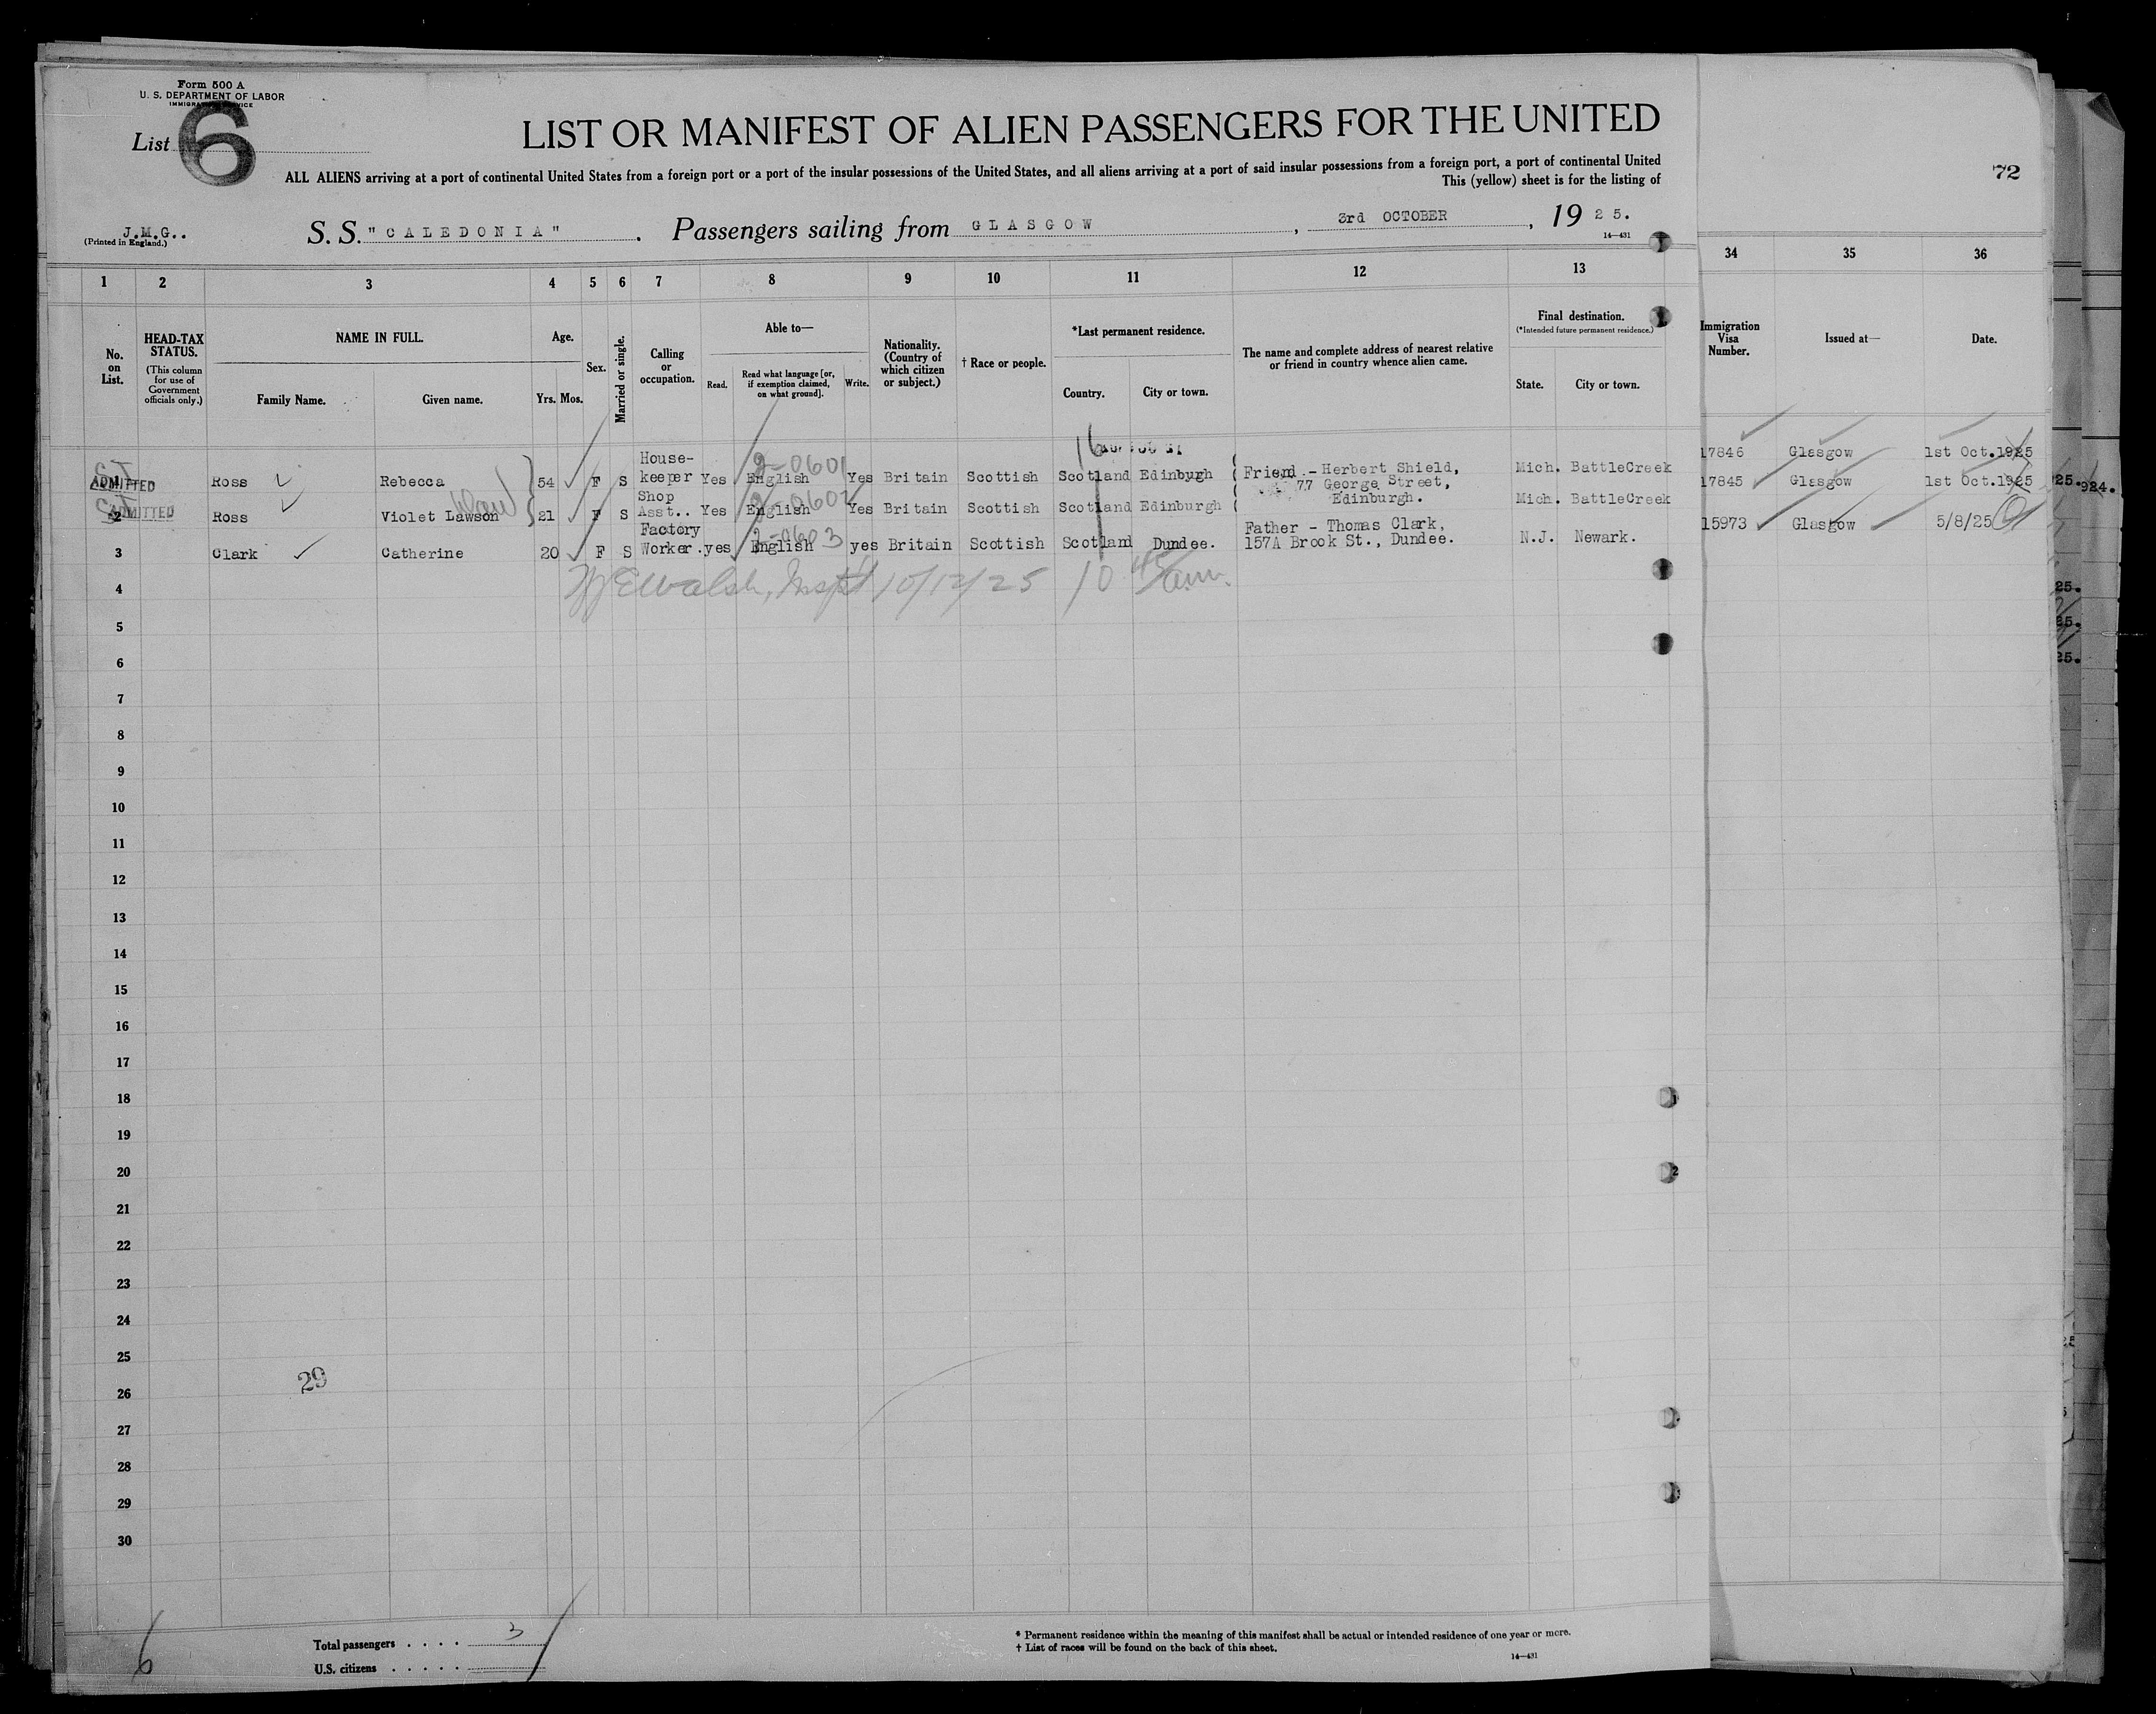 Form 500 A
U. S. DEPARTMENT OF LABOR
IMMIGRATION SERVICE
List 6
LIST OR MANIFEST OF ALIEN PASSENGERS FOR THE UNITED
ALL ALIENS arriving at a port of continental United States from a foreign port or a port of the insular possessions of the United States, and all aliens arriving at a port of said insular possessions from a foreign port, a port of continental United
This (yellow) sheet is for the listing of
72
J.M.G..
(Printed in England.)
S. S. "CALEDONIA" . Passengers sailing from GLASGOW , 3rd OCTOBER , 19 25.
14—431
1 2 3 4 5 6 7 8 9 10 11 12 13 34 35 36
No. on List.
HEAD-TAX STATUS. (This column for use of Government officials only.)
NAME IN FULL.
Family Name. Given name.
Age.
Yrs. Mos.
Sex.
Married or single.
Calling or occupation.
Able to—
Read. Read what language [or, if exemption claimed, on what ground]. Write.
Nationality. (Country of which citizen or subject.)
† Race or people.
*Last permanent residence.
Country. City or town.
The name and complete address of nearest relative or friend in country whence alien came.
Final destination.
(*Intended future permanent residence.)
State. City or town.
Immigration Visa Number.
Issued at—
Date.
16
ADMITTED Ross Rebecca 54 F S House-keeper Yes English 2-0601 Yes Britain Scottish Scotland Edinbugh Friend - Herbert Shield, Mich. BattleCreek 17846 Glasgow 1st Oct.1925
77 George Street,
Edinburgh.
2 ADMITTED Ross Violet Lawson 21 F S Shop Asst.. Yes English 2-0602 Yes Britain Scottish Scotland Edinburgh Mich. BattleCreek 17845 Glasgow 1st Oct.1925
3 Clark Catherine 20 F S Factory Worker. yes English 2-0603 yes Britain Scottish Scotland Dundee. Father - Thomas Clark, 157A Brook St., Dundee. N.J. Newark. 15973 Glasgow 5/8/25
4 Walsh, Inspt 10/12/25 10 45/am.
5
6
7
8
9
10
11
12
13
14
15
16
17
18
19
20
21
22
23
24
25
29
26
27
28
29
30
6
Total passengers . . . . 3
U.S. citizens . . . . .
* Permanent residence within the meaning of this manifest shall be actual or intended residence of one year or more.
† List of races will be found on the back of this sheet.
14—431
25.
924.
25.
25.
25.